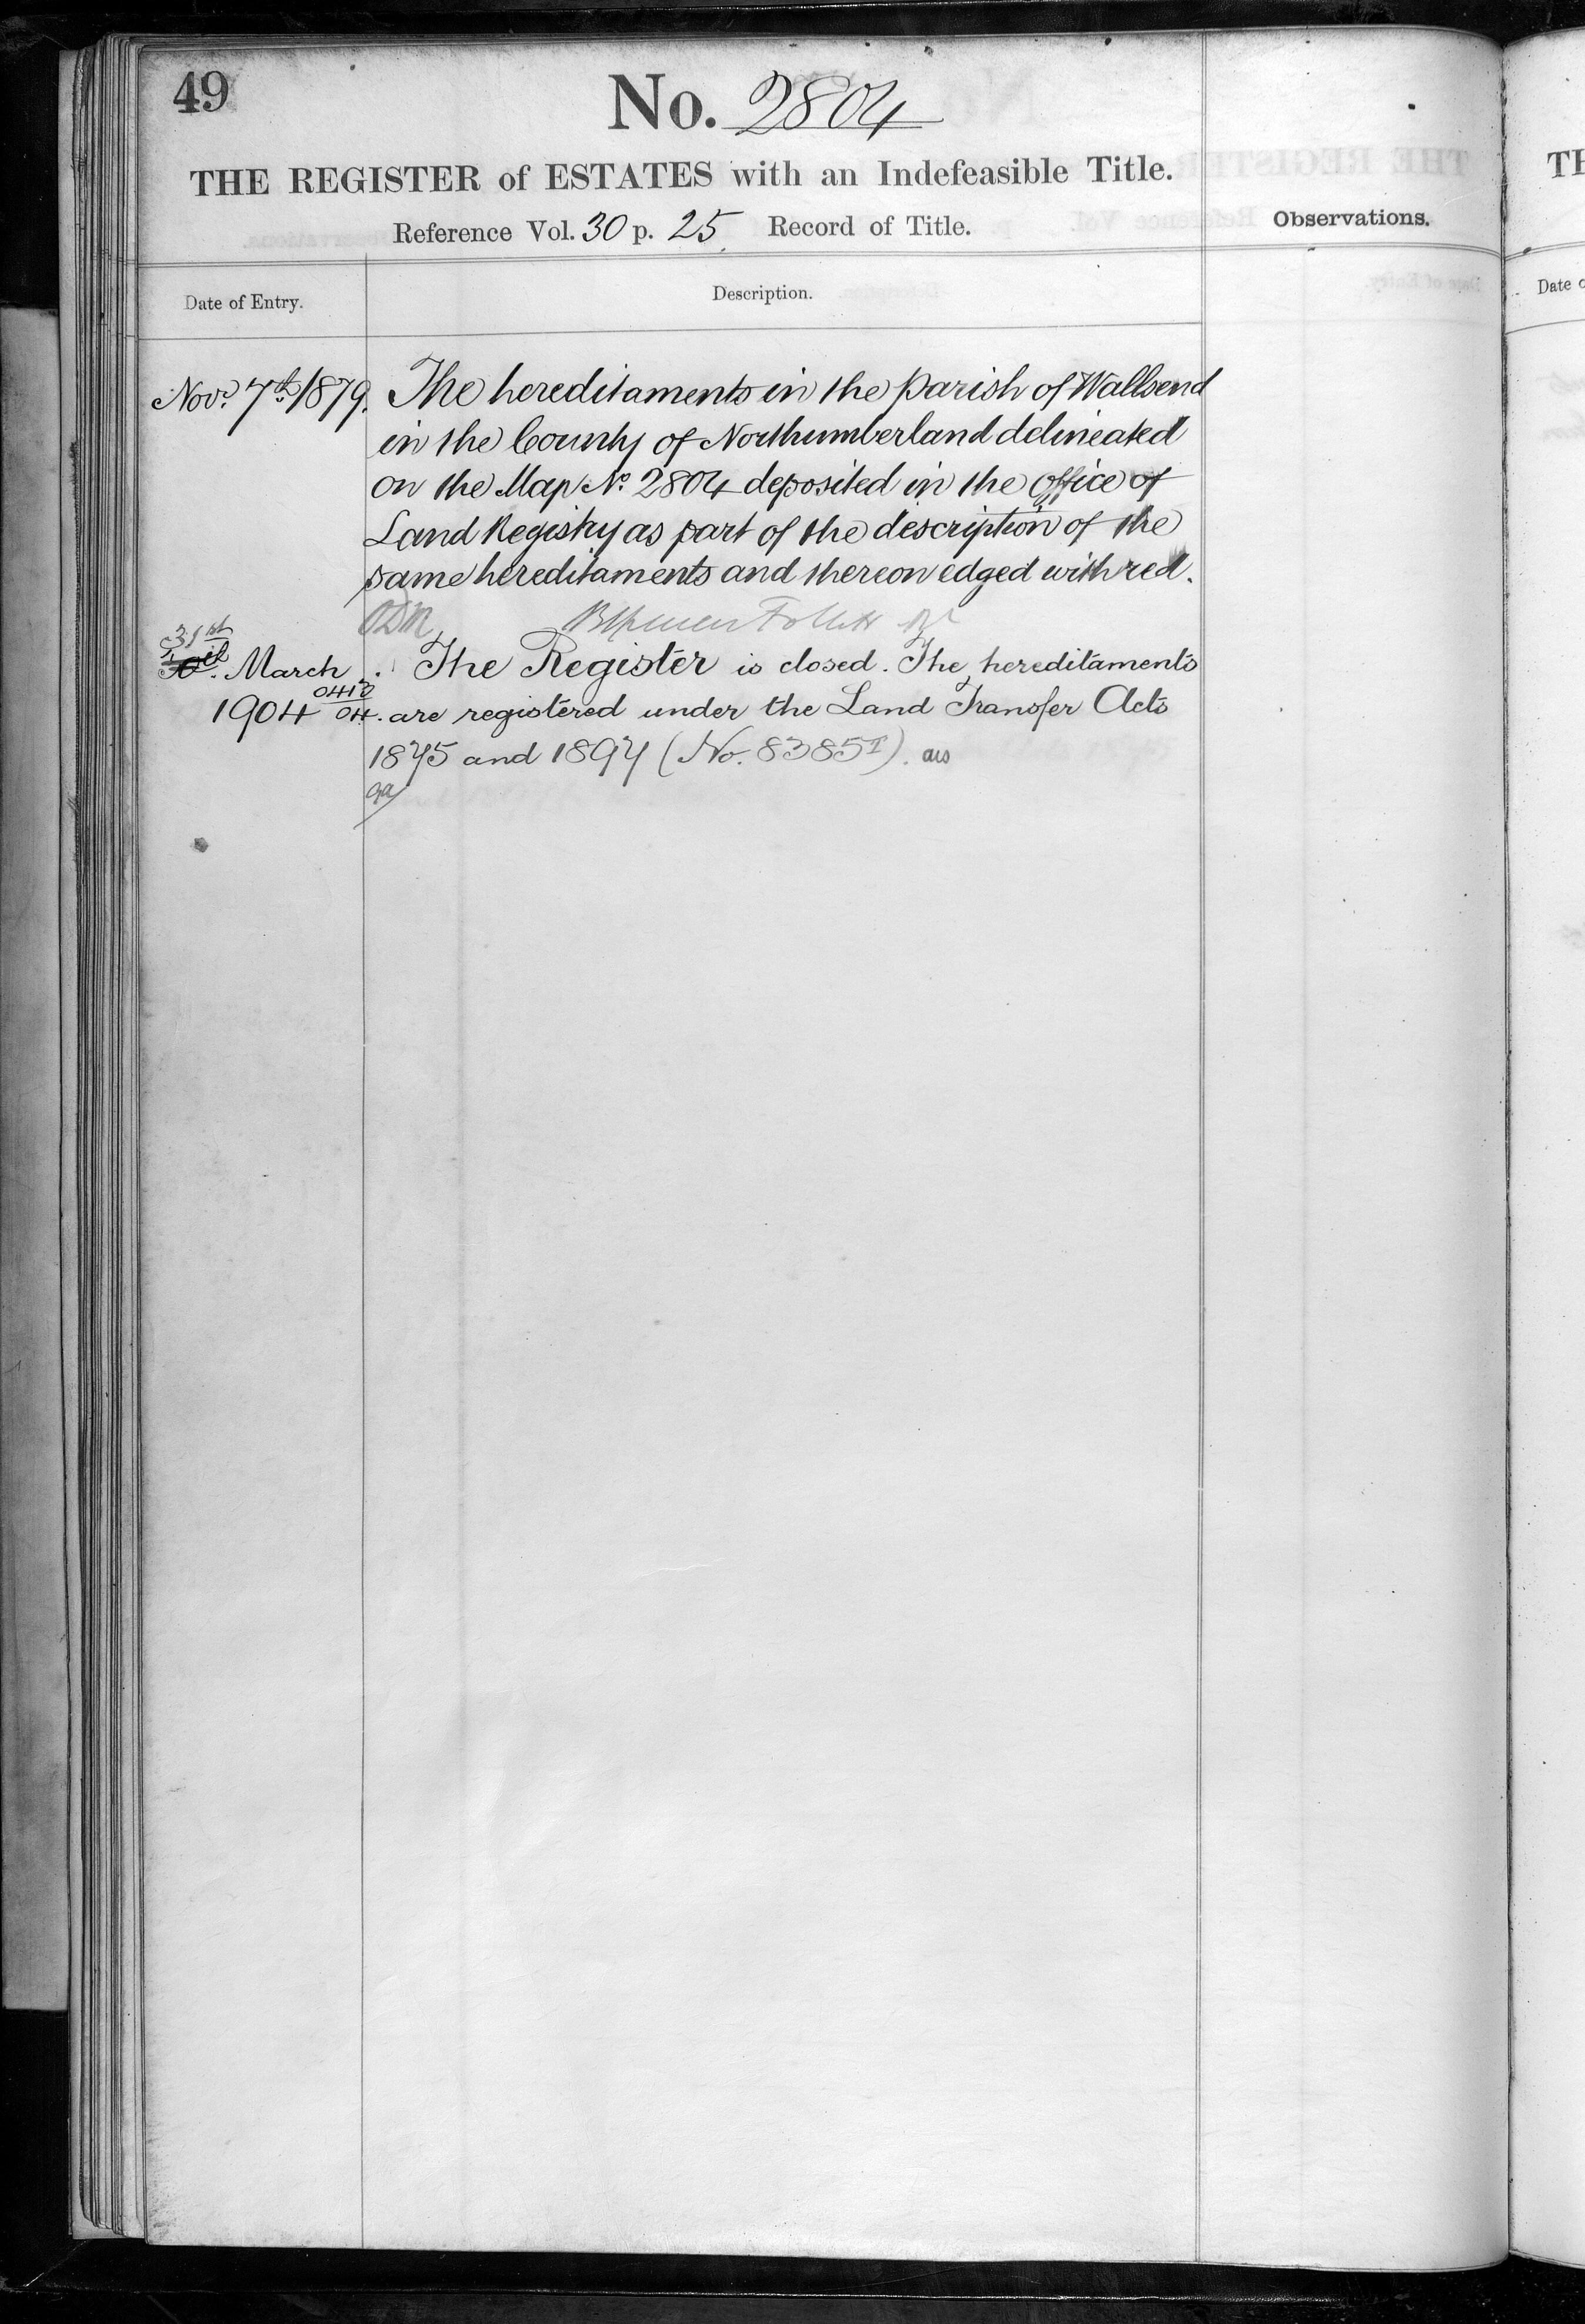 49
No. 2804
THE REGISTER of ESTATES with an Indefeasible Title.
Reference Vol. 30 p. 25 Record of Title.
Observations.
Date of Entry.
Description.
Novr. 7th 1879. The hereditaments in the Parish of Wallsend
in the County of Northumberland delineated
on the Map No. 2804 deposited in the Office of
Land Registry as part of the description of the
same hereditaments and thereon edged with red.
31st
March The Register is closed. The hereditaments
1904 are registered under the Land Transfer Acts
1875 and 1897 (No. 8385
TH
Date o